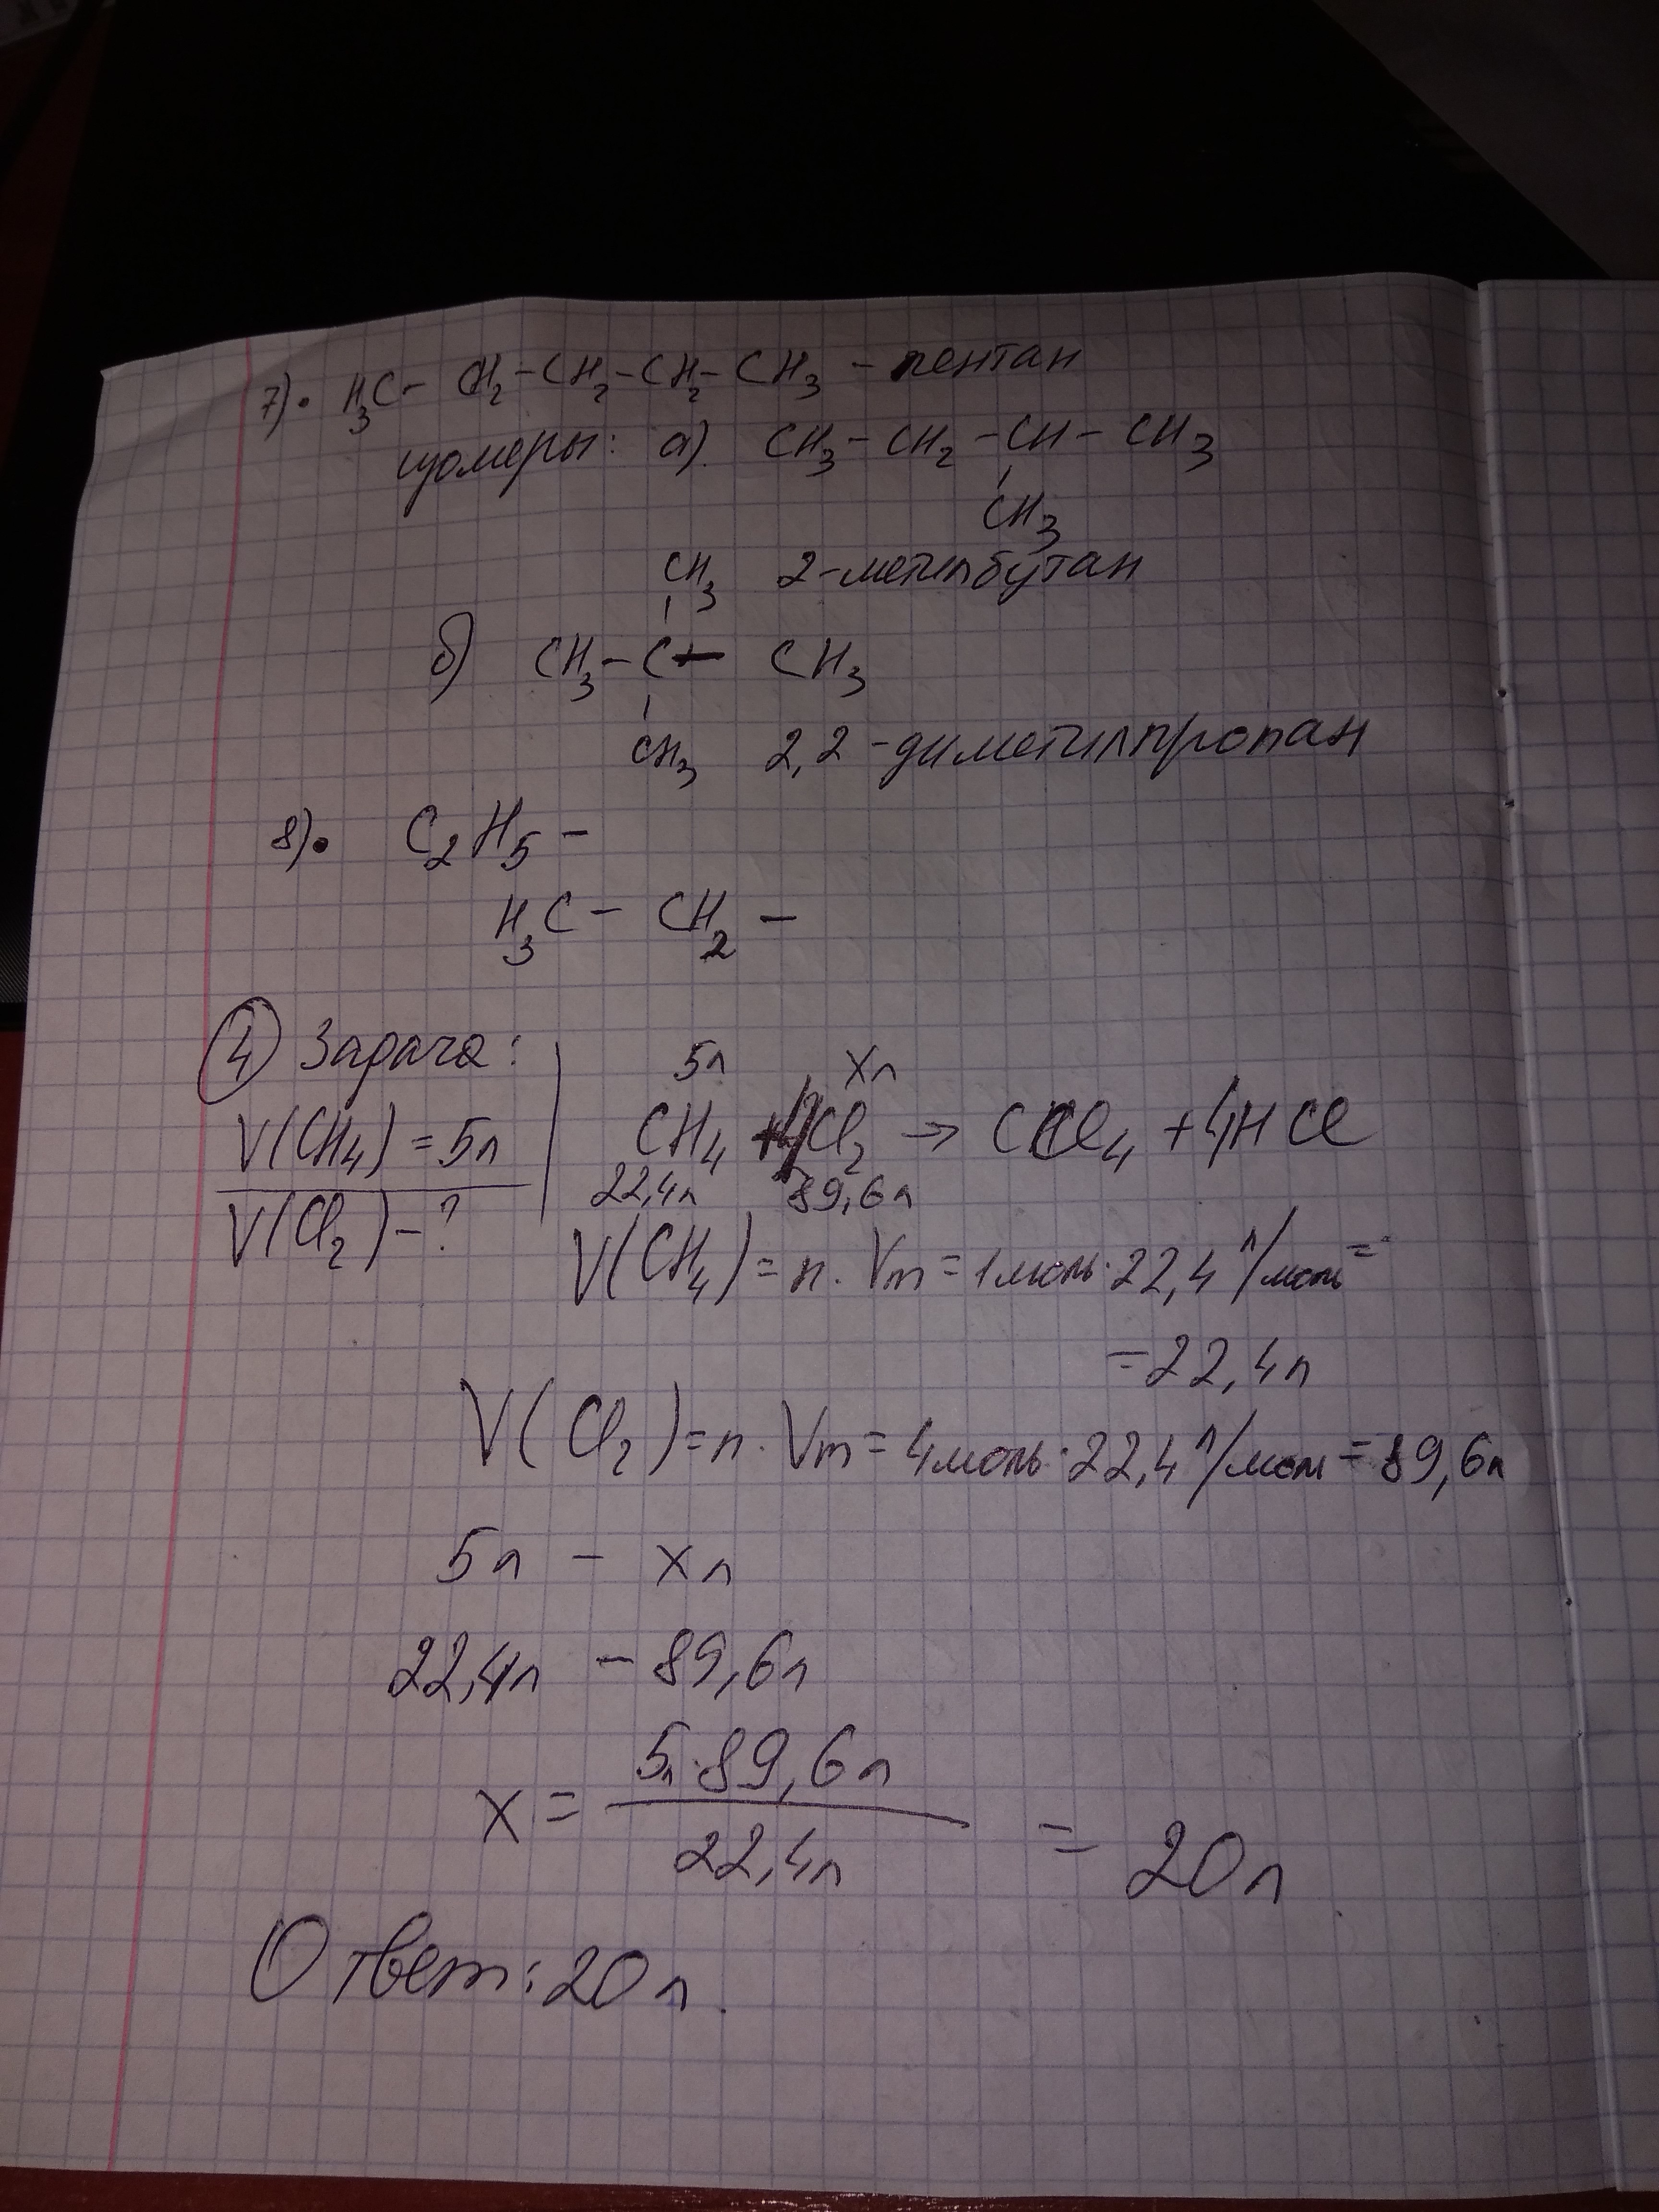 7). H₃C - CH₂ - CH₂ - CH₂ - CH₃ - пентан
изомеры: а). CH₃ - CH₂ - CH - CH₃
CH₃
CH₃ 2-метилбутан
б) CH₃ - C - CH₃
CH₃ 2,2-диметилпропан
8). C₂H₅ -
H₃C - CH₂ -
4 Задача:
5л хл
V(CH₄) = 5л
CH₄ + 4Cl₂ → CCl₄ + 4HCl
22,4л 89,6л
V(Cl₂) - ?
V(CH₄) = n · Vm = 1моль · 22,4 л/моль =
= 22,4л
V(Cl₂) = n · Vm = 4моль · 22,4 л/моль = 89,6л
5л - хл
22,4л - 89,6л
x = 5л · 89,6л / 22,4л = 20л
Ответ: 20л.